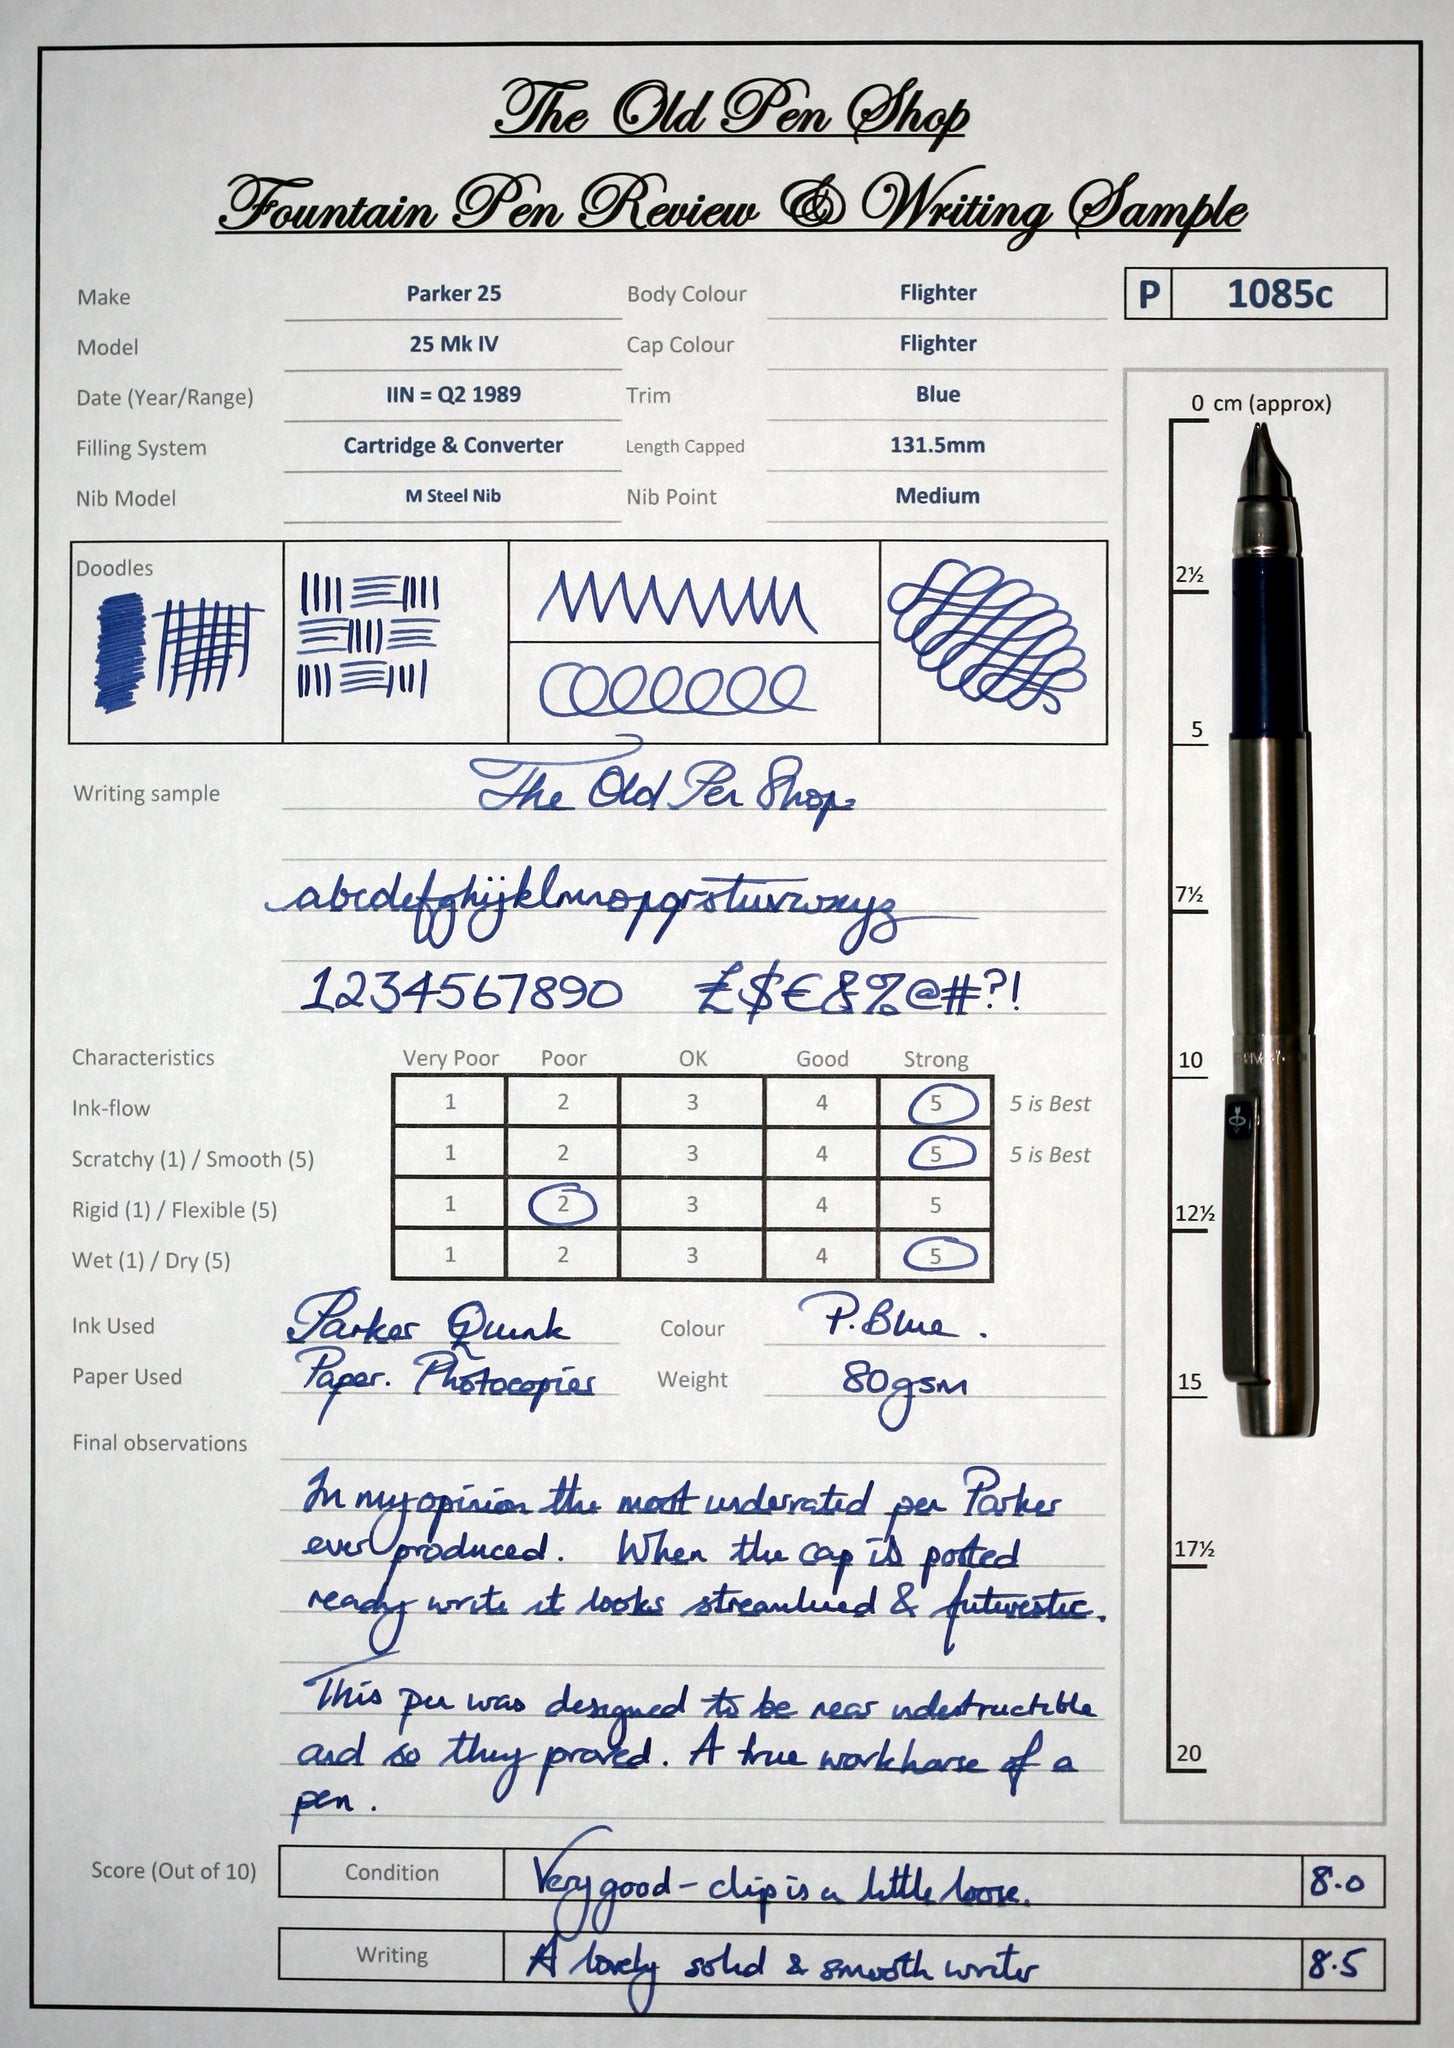 The Old Pen Shop
Fountain Pen Review & Writing Sample
Make Parker 25 Body Colour Flighter P 1085c
Model 25 Mk IV Cap Colour Flighter
Date (Year/Range) IIN = Q2 1989 Trim Blue
Filling System Cartridge & Converter Length Capped 131.5mm
Nib Model M Steel Nib Nib Point Medium
0 cm (approx)
2½
5
7½
10
12½
15
17½
20
Doodles
Writing sample The Old Pen Shop
abcdefghijklmnopqrstuvwxyz
1234567890 £$€&%@#?!
Characteristics Very Poor Poor OK Good Strong
Ink-flow 1 2 3 4 5 5 is Best
Scratchy (1) / Smooth (5) 1 2 3 4 5 5 is Best
Rigid (1) / Flexible (5) 1 2 3 4 5
Wet (1) / Dry (5) 1 2 3 4 5
Ink Used Parker Quink Colour P. Blue .
Paper Used Paper. Photocopier Weight 80gsm
Final observations
In my opinion the most underrated pen Parker
ever produced. When the cap is posted
ready write it looks streamlined & futurestic.
This pen was designed to be near indestructible
and so they proved. A true workhorse of a
pen.
Score (Out of 10) Condition Very good - clip is a little loose. 8.0
Writing A lovely solid & smooth writer 8.5